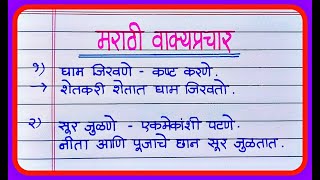 मराठी वाक्यप्रचार
१) घाम जिरवणे - कष्ट करणे.
→ शेतकरी शेतात घाम जिरवतो.
२) सूर जुळणे - एकमेकांशी पटणे.
नीता आणि पूजाचे छान सूर जुळतात.